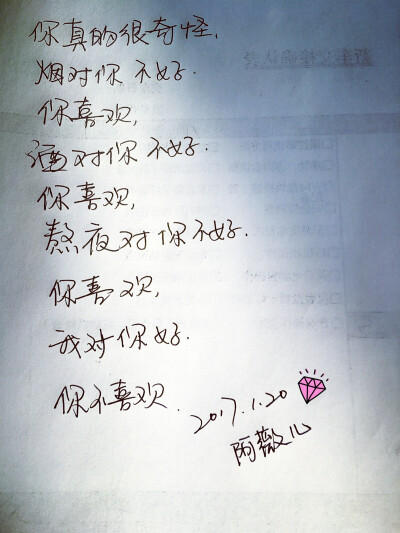 你真的很奇怪,
烟对你不好.
你喜欢,
酒对你不好.
你喜欢,
熬夜对你不好.
你喜欢,
我对你好.
你不喜欢.
2017.1.20
阿薇儿